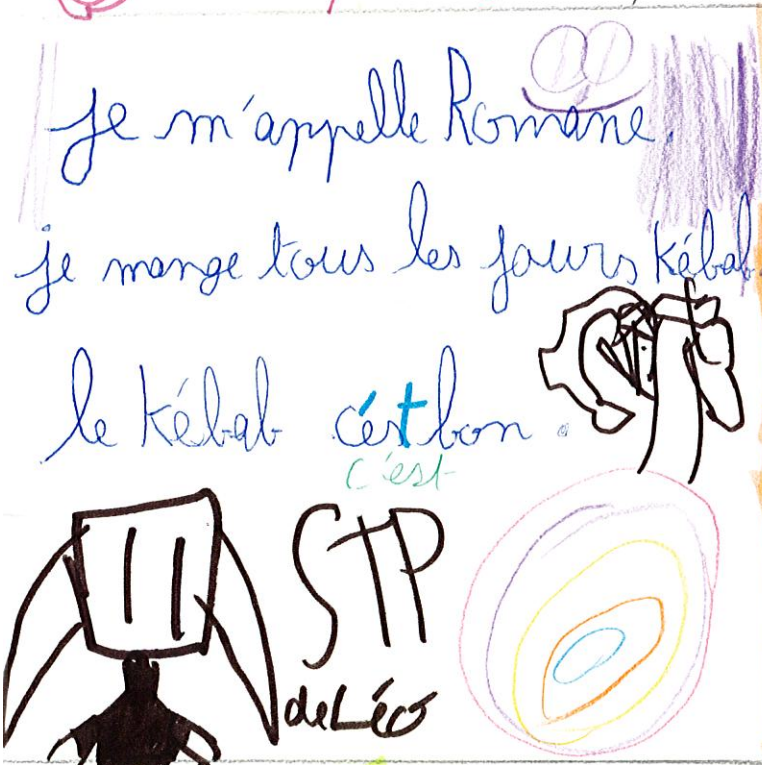 je m'appelle Romane.
je mange tous les jours kébab.
le kébab c'est bon.
c'est
STP
de Léo